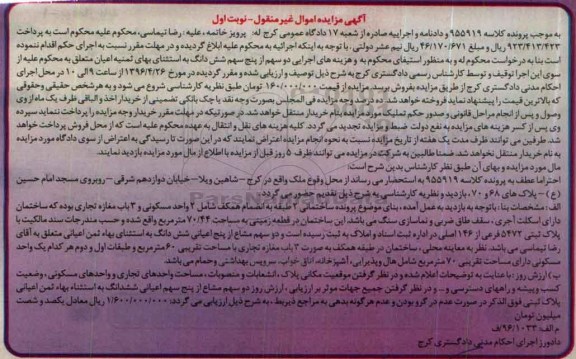 آگهی مزایده اموال غیر منقول - نوبت اول
به موجب پرونده کلاسه ۹۵۵۹۱۹ و دادنامه و اجراییه صادره از شعبه ۱۷ دادگاه عمومی کرج له: پرویز خاتمه، علیه: رضا تیماسی، محکوم علیه محکوم است به پرداخت
۹۲۳/۴۱۳/۴۲۳ ریال و مبلغ ۴۶/۱۷۰/۶۷۱ ریال نیم عشر دولتی، با توجه به اینکه اجرائیه به محکوم علیه ابلاغ گردیده و در مهلت مقرر نسبت به اجرای حکم اقدام ننموده
است بنا به درخواست محکوم له و به منظور استیفای محکوم به و هزینه های اجرایی دو سهم از پنج سهم شش دانگ به استثنای بهای ثمنیه اعیان متعلق به محکوم علیه از
سوی این اجرا توقیف و توسط کارشناس رسمی دادگستری کرج به شرح ذیل توصیف و ارزیابی شده و مقرر گردیده در مورخ ۱۳۹۶/۴/۲۶ از ساعت ۹ الی ۱۰ در محل اجرای
احکام مدنی دادگستری کرج از طریق مزایده بفروش برسد. مزایده از قیمت ۱۶۰/۰۰۰/۰۰۰ تومان طبق نظریه کارشناسی شروع می شود و به هرشخص حقیقی وحقوقی
که بالاترین قیمت را پیشنهاد نماید فروخته خواهد شد. ۱۰٪ وجه مزایده فی المجلس بصورت وجه نقد یا چک بانکی تضمینی از خریدار اخذ و الباقی ظرف یک ماه از وی
وصول و پس از انجام مراحل قانونی و صدور حکم تملیک مورد مزایده بنام خریدار منتقل خواهد شد. در صورتیکه در مهلت مقرر خریدار وجه مزایده را پرداخت ننماید سپرده
وی پس از کسر هزینه های مزایده به نفع دولت ضبط و مزایده تجدید می گردد. کلیه هزینه های نقل و انتقال به عهده محکوم علیه است که از محل فروش پرداخت خواهد
شد. طرفین می توانند ظرف مدت یک هفته از تاریخ مزایده نسبت به نحوه انجام مزایده اعتراض نمایند که در این صورت تا رسیدگی به اعتراض از سوی دادگاه مورد مزایده
به نام خریدار منتقل نخواهد شد. ضمنا طالبین به شرکت در مزایده می توانند ظرف ۵ روز قبل از مزایده با اطلاع از مال مورد مزایده بازدید نمایند.
مال مورد مزایده و بهای آن طبق نظر کارشناس بدین شرح است:
احتراما عطف به پرونده کلاسه ۹۵۵۹۱۹ به استحضار می رساند از محل وقوع ملک واقع در کرج - شاهین ویلا - خیابان دوازدهم شرقی - روبروی مسجد امام حسین
(ع) - پلاک های ۶۸ و ۷۰، بازدید و نظریه کارشناسی به شرح ذیل تقدیم حضور می گردد:
الف: مشخصات بنا: باتوجه به بازدید به عمل آمده، بنای موضوع پرونده، ساختمانی ۲ طبقه به انضمام همکف شامل ۲ واحد مسکونی و ۳ باب مغازه تجاری بوده که ساختمان
دارای اسکلت آجری، سقف طاق ضربی و نماسازی سنگ می باشد. این ساختمان در قطعه زمینی به مساحت ۷۰/۴۴ مترمربع واقع شده و حسب مندرجات سند مالکیت با
پلاک ثبتی ۵۴۷۲ فرعی از ۱۴۶ اصلی در اداره ثبت اسناد و املاک به ثبت رسیده است و دو سهم مشاع از پنج اعیانی شش دانگ به استثنای بهاء ثمن اعیانی متعلق به آقای
رضا تیماسی می باشد. نظر به معاینه محلی، ساختمان در طبقه همکف به صورت ۳ باب مغازه تجاری با مساحت تقریبی ۶۰ مترمربع و طبقات اول و دوم هر کدام یک واحد
مسکونی دارای مساحت تقریبی ۷۰ مترمربع شامل هال و پذیرایی، آشپزخانه، اتاق خواب، سرویس بهداشتی و حمام می باشد.
ب) ارزش روز: با عنایت به توضیحات اعلام شده و در نظر گرفتن موقعیت مکانی پلاک، انشعابات و منصوبات، مساحت واحدهای تجاری و واحدهای مسکونی، وضعیت
کسب و پیشه و راههای دسترسی و ... و در نظر گرفتن جمیع جهات موثر بر ارزیابی، ارزش روز دو سهم مشاع از پنج سهم اعیانی ششدانگ به استثناء بهاء ثمن اعیانی
پلاک ثبتی فوق الذکر در صورت عدم در گرو بودن و عدم هرگونه بدهی به مراجع ذیربط، به شرح ذیل ارزیابی می گردد: ۱/۶۰۰/۰۰۰/۰۰۰ ریال معادل یکصد و شصت
میلیون تومان
م الف: ۹۶/۱۰۳۳/ف
دادورز اجرای احکام مدنی دادگستری کرج